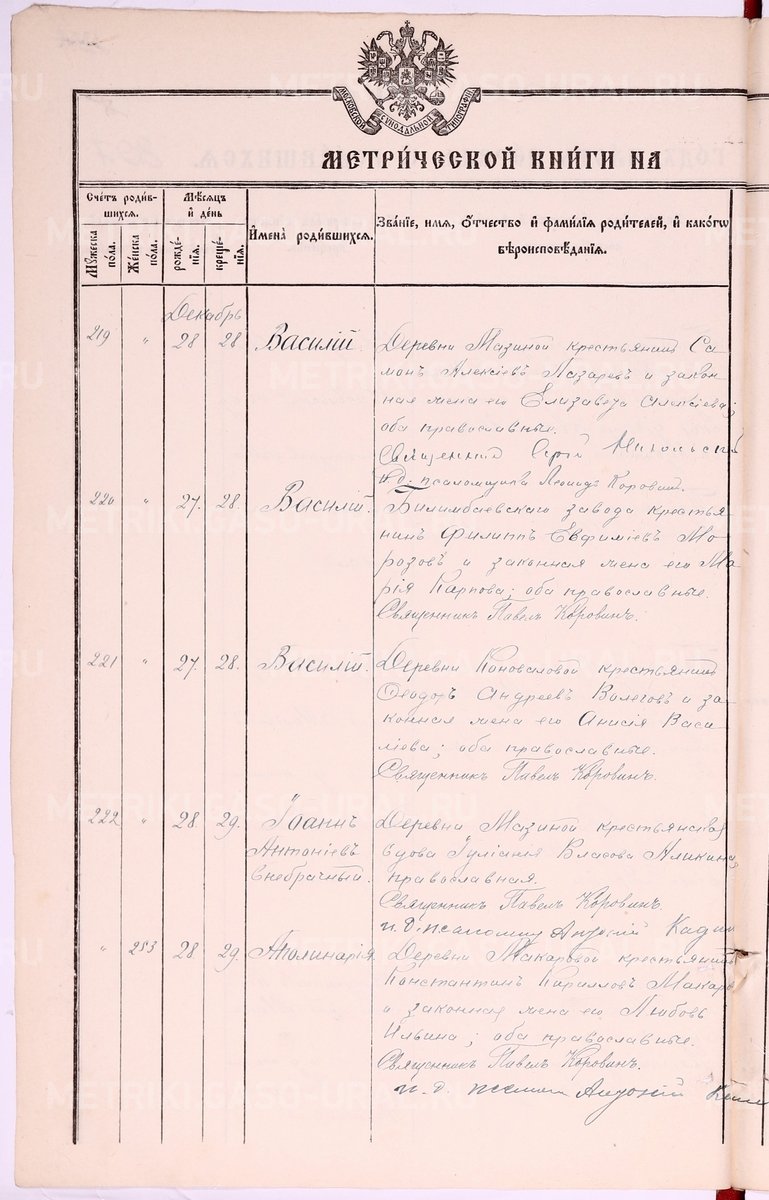 МОСКОВСКОЙ СѴНОДАЛЬНОЙ ТИПОГРАФІИ
МЕТРИ́ЧЕСКОЙ КНИ́ГИ НА
Сче́тъ роди́вшихся.
Мѣ́сяцъ и҆ де́нь
Мꙋ́жеска по́ла.
Же́нска по́ла.
рожде́нїѧ.
креще́нїѧ.
И҆мена̀ роди́вшихсѧ.
Зва́нїе, и҆мѧ, ѻ҆́тчество и҆ фами́лїѧ роди́телей, и҆ како́гѡ
вѣроисповѣ́данїѧ.
Декабрь
219 " 28 28 Василій
Деревни Мазиной крестьянинъ Са
монъ Алексіевъ Лазаревъ и закон
ная жена его Елизавета Алексіева;
оба православные.
Священникъ Никольскій
и.д. псаломщика Леонидъ Коровинъ.
220 " 27. 28. Василій.
Билимбаевскаго завода крестья-
нинъ Филиппъ Евфиміевъ Мо-
розовъ и законная жена его Ма-
рія Карпова; оба православные.
Священникъ Павелъ Коровинъ.
221 " 27 28. Василій.
Деревни Коноваловой крестьянинъ
Ѳеодоръ Андреевъ Волеговъ и за-
конная жена его Анисія Васи
ліева; оба православные.
Священникъ Павелъ Коровинъ.
222 " 28 29. Іоаннъ
Антоніевъ
внебрачный.
Деревни Мазиной крестьянская
вдова Іуліанія Власова Аликина,
православная.
Священникъ Павелъ Коровинъ.
и.д. псаломщ
" 253 28 29 Аполинарія
Деревни Макаровой крестьянинъ
Константинъ Кирилловъ Макаров
и законная жена его Любовь
Ильина; оба православные.
Священникъ Павелъ Коровинъ.
и.д.
METRIKI.GASO-URAL.RU